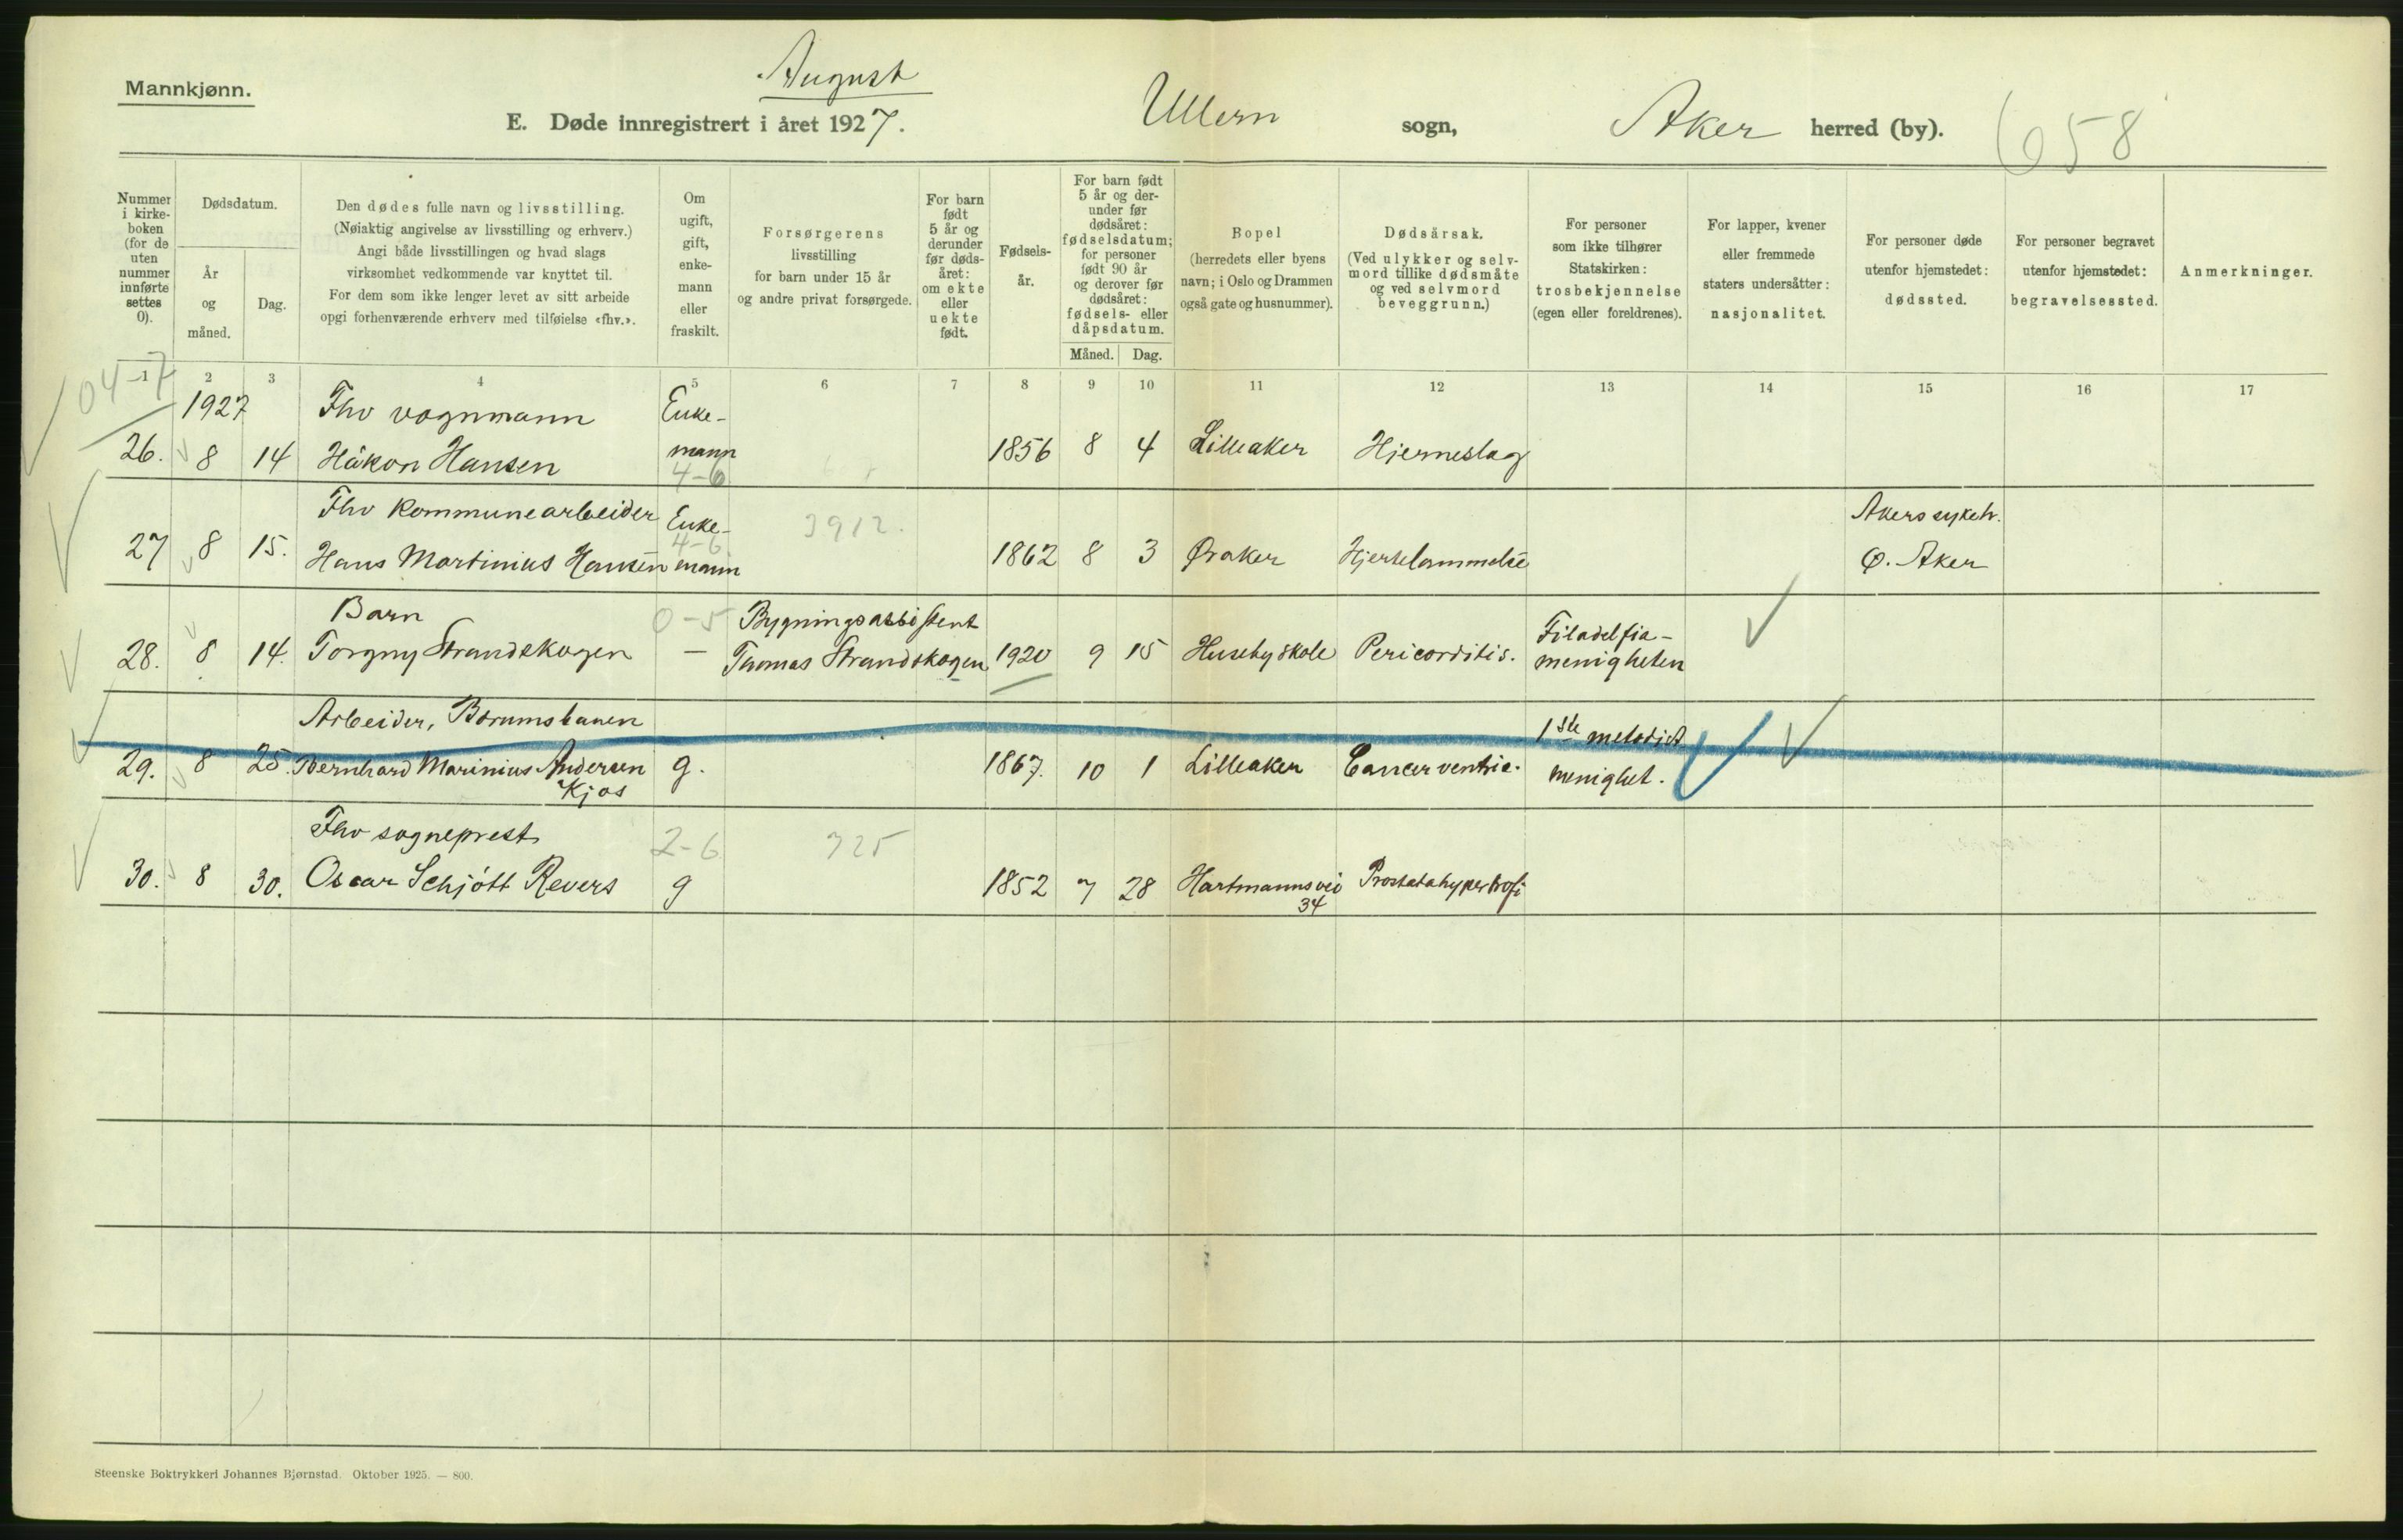 Mannkjønn.
August
E. Døde innregistrert i året 1927. Ullern sogn, Aker herred (by). 658
Nummer i kirke- boken (for de uten nummer innførte settes 0).
Dødsdatum.
År og måned.
Dag.
Den dødes fulle navn og livsstilling.
(Nøiaktig angivelse av livsstilling og erhverv.)
Angi både livsstillingen og hvad slags
virksomhet vedkommende var knyttet til.
For dem som ikke lenger levet av sitt arbeide
opgi forhenværende erhverv med tilføielse «fhv.».
Om ugift, gift, enke- mann eller fraskilt.
Forsørgerens
livsstilling
for barn under 15 år
og andre privat forsørgede.
For barn født 5 år og derunder før døds- året: om ekte eller uekte født.
Fødsels- år.
For barn født 5 år og der- under før dødsåret: fødselsdatum; for personer født 90 år og derover før dødsåret: fødsels- eller dåpsdatum.
Måned. Dag.
Bopel
(herredets eller byens
navn; i Oslo og Drammen
også gate og husnummer).
Dødsårsak.
(Ved ulykker og selv-
mord tillike dødsmåte
og ved selvmord
beveggrunn.)
For personer
som ikke tilhører
Statskirken:
trosbekjennelse
(egen eller foreldrenes).
For lapper, kvener
eller fremmede
staters undersåtter:
nasjonalitet.
For personer døde
utenfor hjemstedet:
dødssted.
For personer begravet
utenfor hjemstedet:
begravelsessted.
Anmerkninger.
1 2 3 4 5 6 7 8 9 10 11 12 13 14 15 16 17
04-7
1927 Fhv vognmann Enke-
26. 8 14 Håkon Hansen mann 1856 8 4 Lilleaker Hjerneslag
4-6
Fhv Kommunearbeider Enke- 3912. Akers sykeh.
4-6
27 8 15. Hans Martinius Hansen mann 1862 8 3 Øraker Hjertelammelse Ø. Aker
Barn 0-5 Bygningsassistent Filadelfia-
28. 8 14. Torgny Strandskogen — Thomas Strandskogen 1920 9 15 Huseby skole Pericarditis. menigheten
Arbeider, Bærumsbanen 1ste metodist
29. 8 25. Bernhard Marinius Andersen g. 1867. 10 1 Lilleaker Cancer ventric. menighet.
Kjos
Fhv sogneprest 2-6 325
30. 8 30. Oscar Schjött Revers g 1852 7 28 Hartmannsvei Prostatahypertrofi
34
Steenske Boktrykkeri Johannes Bjørnstad. Oktober 1925. — 800.